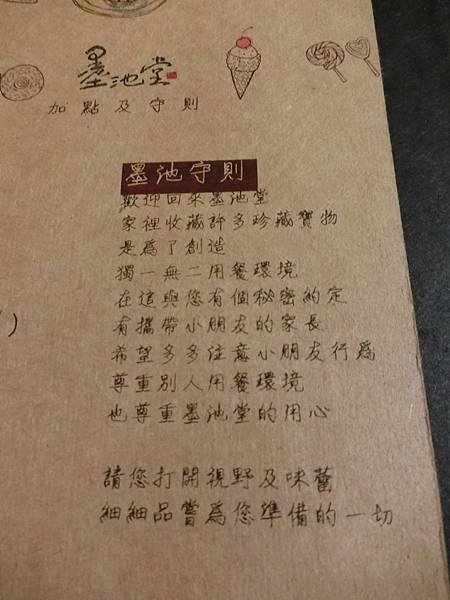 墨池堂
加點及守則
墨池守則
歡迎回來墨池堂
家裡收藏許多珍藏寶物
是為了創造
獨一無二用餐環境
在這與您有個秘密約定
有攜帶小朋友的家長
希望多多注意小朋友行為
尊重別人用餐環境
也尊重墨池堂的用心
請您打開視野及味蕾
細細品嘗為您準備的一切
)